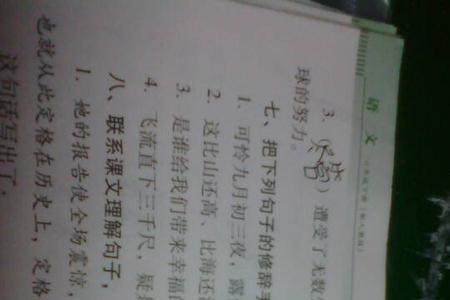 语 文
3. (尽管) 遭受了无数
球的努力。
七、把下列句子的修辞
1. 可怜九月初三夜，露
2. 这比山还高、比海还
3. 是谁给我们带来幸福
4. 飞流直下三千尺，疑
八、联系课文理解句子，
1. 她的报告使全场震惊，
也就从此定格在历史上，定格
这句话写出了